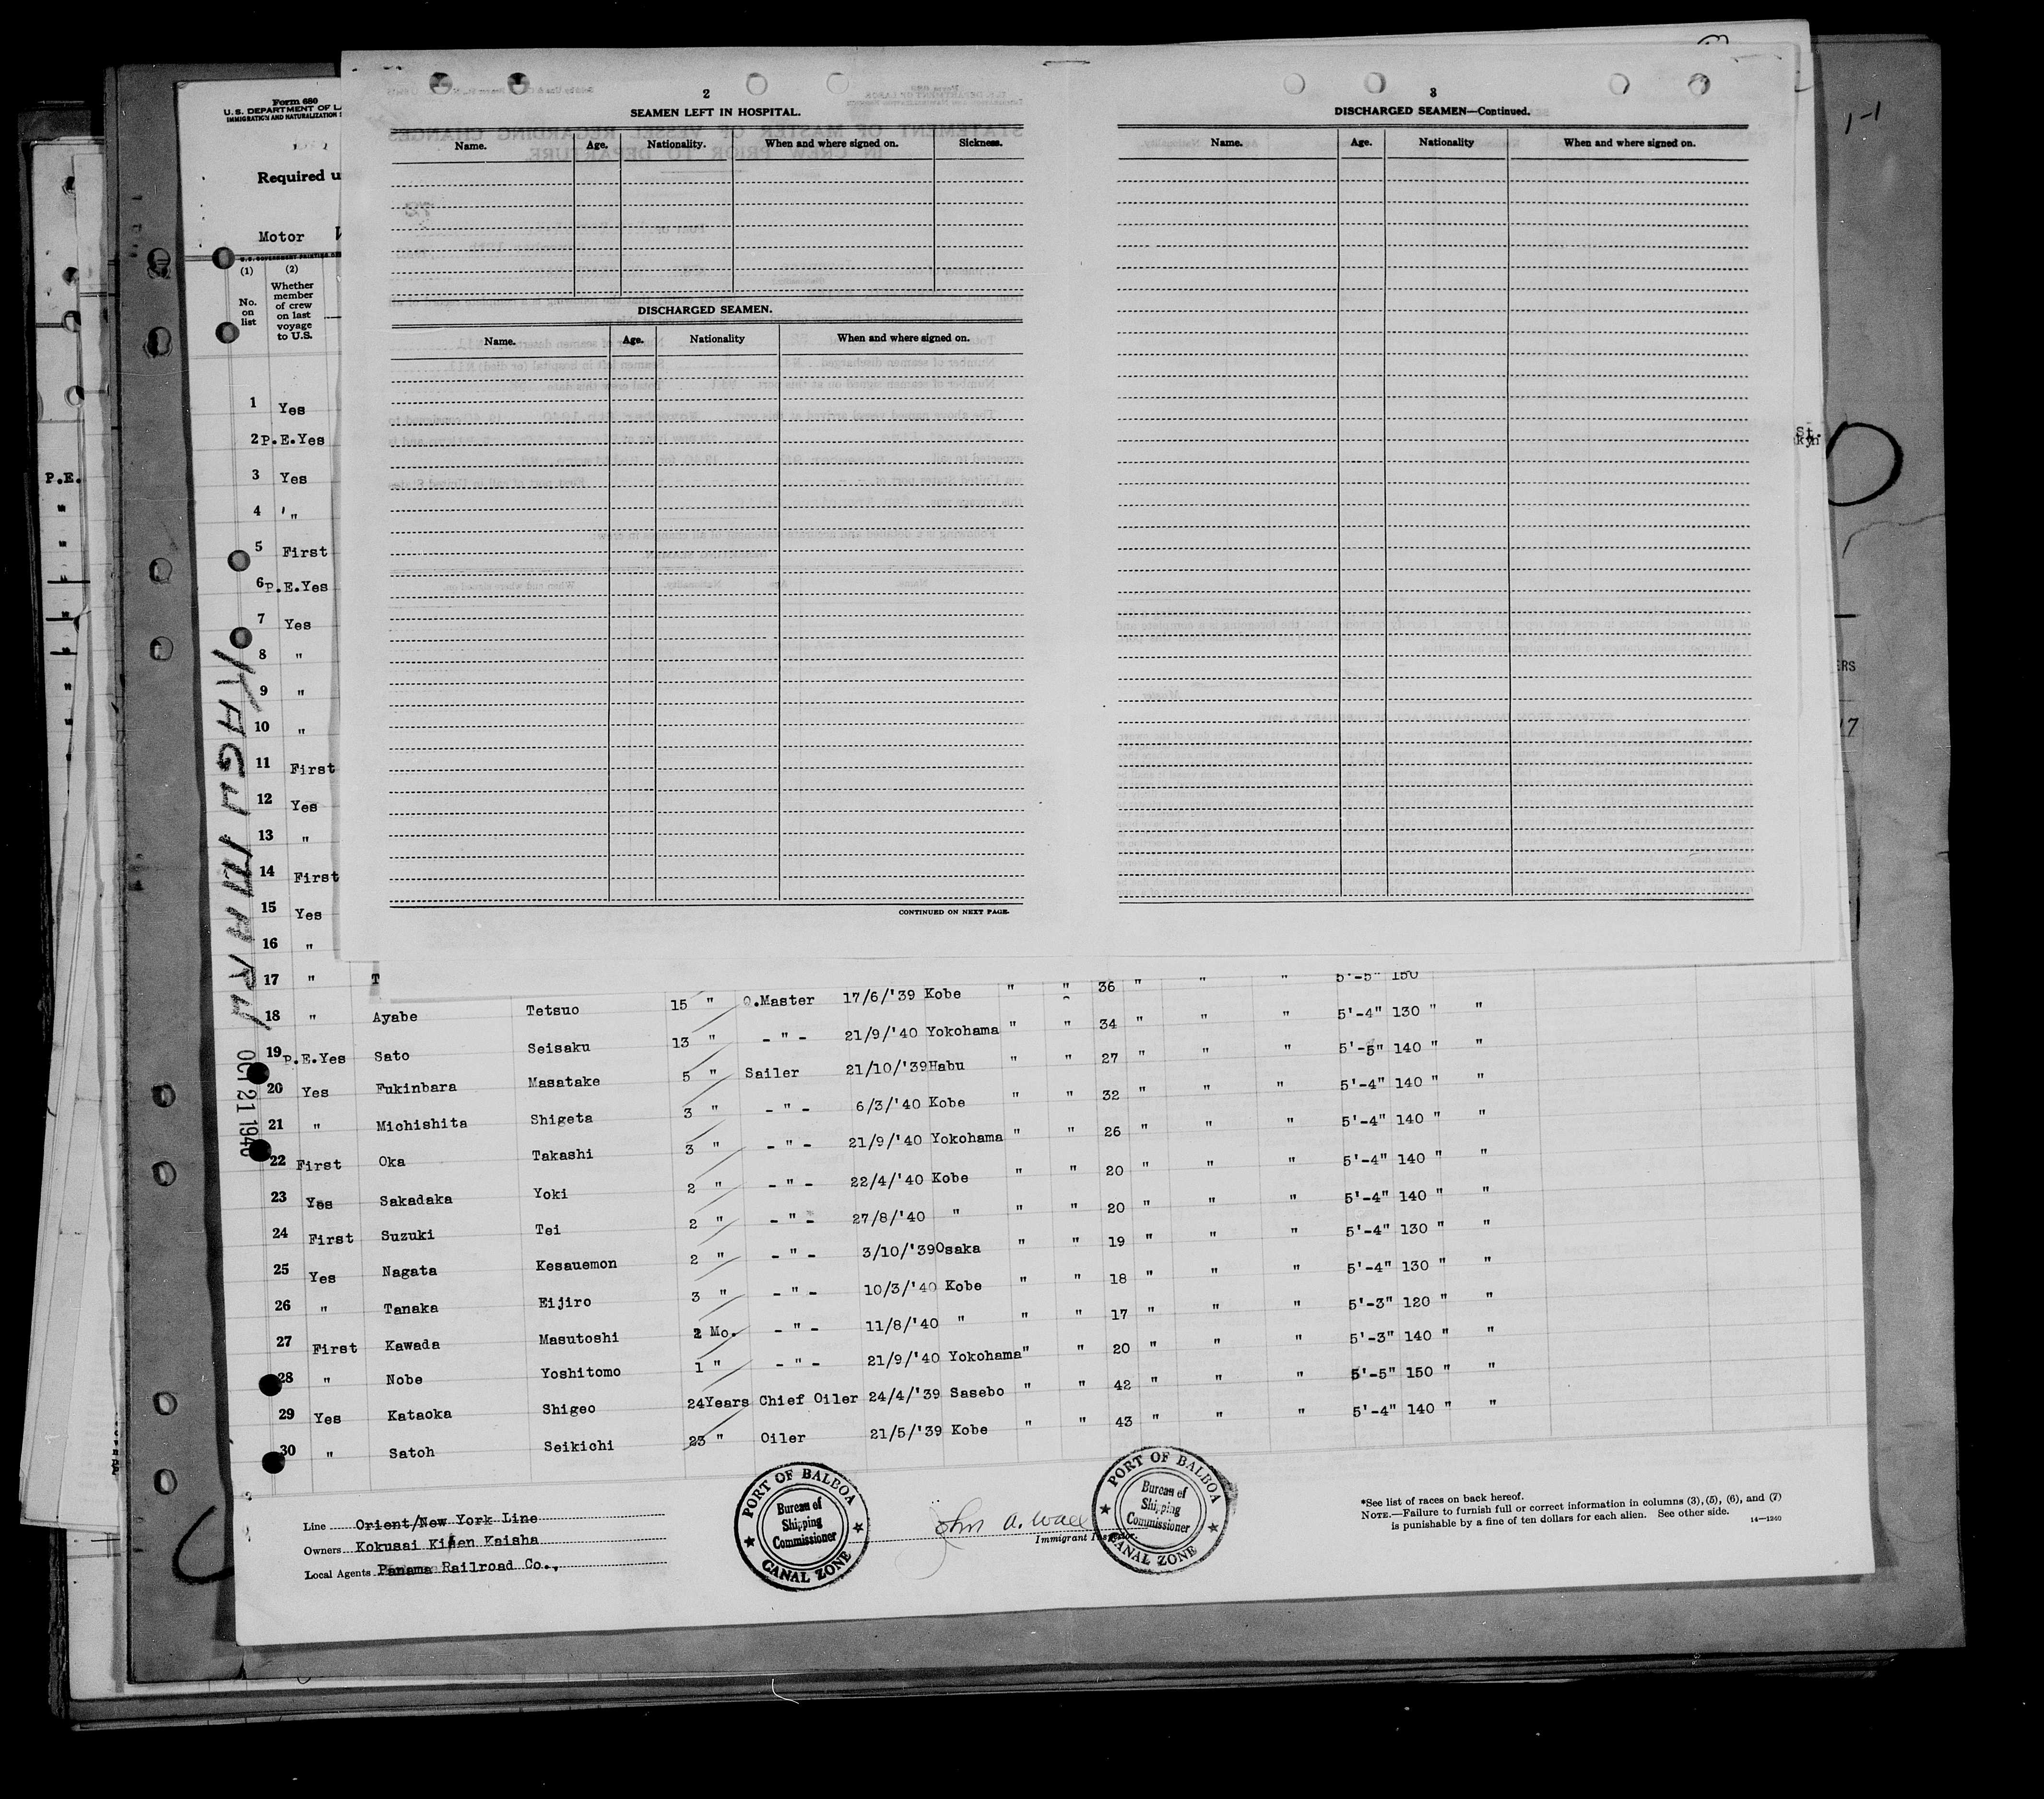 Form 680
U.S. DEPARTMENT OF LA
IMMIGRATION AND NATURALIZATION
Required u
Motor
(1) (2)
No. on list
Whether member of crew on last voyage to U.S.
1 Yes
2 P.E.Yes
3 Yes
4 "
5 First
6 P.E.Yes
7 Yes
8 "
9 "
10 "
11 First
12 Yes
13 "
14 First
15 Yes
16 "
2
SEAMEN LEFT IN HOSPITAL.
Name. Age. Nationality. When and where signed on. Sickness.
DISCHARGED SEAMEN.
Name. Age. Nationality When and where signed on.
CONTINUED ON NEXT PAGE.
3
DISCHARGED SEAMEN—Continued.
Name. Age. Nationality When and where signed on.
P.E.
St.
kyn
ERS
17
1-1
17 " T 5'-5" 150
18 " Ayabe Tetsuo 15 " Q.Master 17/6/'39 Kobe " " 36 " " " 5'-4" 130 " "
19 P.E.Yes Sato Seisaku 13 " - " - 21/9/'40 Yokohama " " 34 " " " 5'-5" 140 " "
20 Yes Fukinbara Masatake 5 " Sailer 21/10/'39 Habu " " 27 " " " 5'-4" 140 " "
21 " Michishita Shigeta 3 " - " - 6/3/'40 Kobe " " 32 " " " 5'-4" 140 " "
22 First Oka Takashi 3 " - " - 21/9/'40 Yokohama " " 26 " " " 5'-4" 140 " "
23 Yes Sakadaka Yoki 2 " - " - 22/4/'40 Kobe " " 20 " " " 5'-4" 140 " "
24 First Suzuki Tei 2 " - " - 27/8/'40 " " " 20 " " " 5'-4" 130 " "
25 Yes Nagata Kesauemon 2 " - " - 3/10/'39 Osaka " " 19 " " " 5'-4" 130 " "
26 " Tanaka Eijiro 3 " - " - 10/3/'40 Kobe " " 18 " " " 5'-3" 120 " "
27 First Kawada Masutoshi 2 Mo. - " - 11/8/'40 " " " 17 " " " 5'-3" 140 " "
28 " Nobe Yoshitomo 1 " - " - 21/9/'40 Yokohama " " 20 " " " 5'-5" 150 " "
29 Yes Kataoka Shigeo 24Years Chief Oiler 24/4/'39 Sasebo " " 42 " " " 5'-4" 140 " "
30 " Satoh Seikichi 23 " Oiler 21/5/'39 Kobe " " 43 "
KAGU MARU
OCT 21 1940
Line Orient/New York Line
Owners Kokusai Kisen Kaisha
Local Agents Panama Railroad Co.,
PORT OF BALBOA
Bureau of Shipping Commissioner
CANAL ZONE
John A. Wall
Immigrant Inspector.
PORT OF BALBOA
Bureau of Shipping Commissioner
CANAL ZONE
*See list of races on back hereof.
NOTE.—Failure to furnish full or correct information in columns (3), (5), (6), and (7)
is punishable by a fine of ten dollars for each alien. See other side.
14—1240